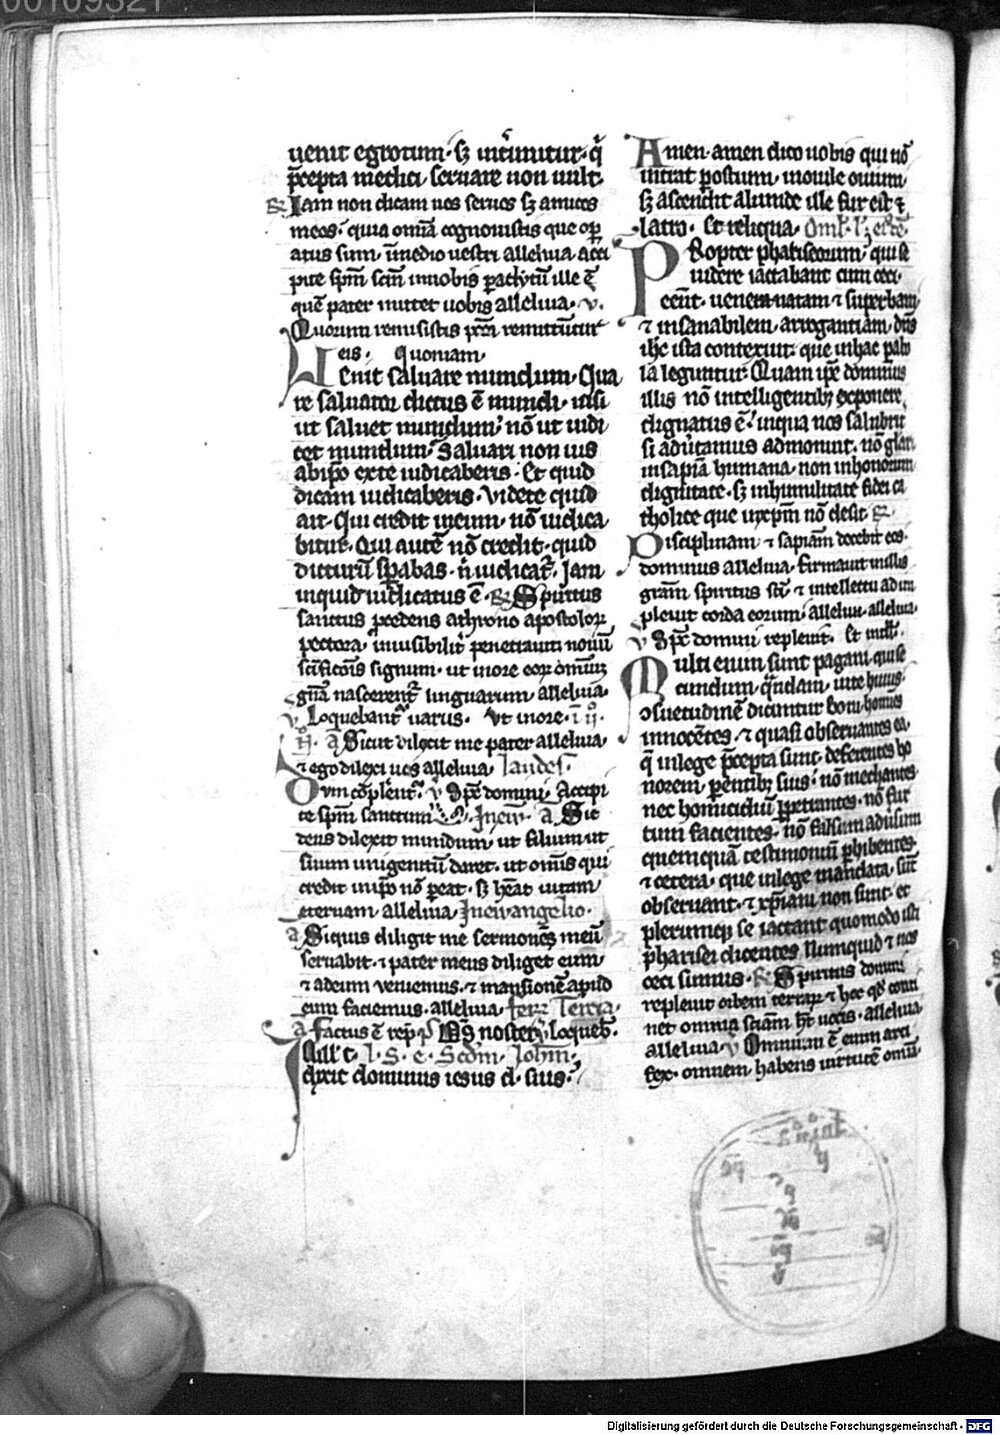 00109321
uenit egrotum· sꝫ int̾imitur· q̾
p̄cepta medici seruare non uult·
℟ Iam non dicam uos seruos sꝫ amicos
meos· quia omīa cognouistis que oꝑ
atus sum ī medio uestri alleluia· acci
pite sp̄m sc̄m in uobis paclytū ille ē
quē pater mittet uobis alleluia· v·
Quorum remisistis pc̄ca remittūtur
eis· quoniam·
Uenit saluare mundum· Qua
re saluator dictus ē mundi· nisi
ut saluet mundum· nō ut iudi
cet mundum· Saluari non uis
ab ip̄o ex te iudicaberis· Et quid
dicam iudicaberis· Videte quid
ait· Qui credit in eum· nō iudica
bitur· Qui autē nō credit· quid
dicturū sp̱abas· n̄ iudicat̾· Iam
inquid iudicatus ē· ℟ Spiritus
sanctus p̱cedens a throno apostoloꝝ
pectora· inuisibilit̾ penetrauit nouū
sc̄ificōis signum· ut in ore eoꝝ omīuꝫ
gn̄a nascerent̾ linguarum alleluia·
v Loquebant̾ uariis· Vt in ore· ī ii°
n̄· a Sicut dilexit me pater alleluia·
⁊ ego dilexi uos alleluia· laudes·
Cum cōplent̾· v Sp̄c domini· Accipi
te sp̄m sanctum In ew̄· a Sic
deus dilexit mundum· ut filium ut
suum unigenitū daret· ut omīs qui
credit in ip̄o nō p̱eat· sꝫ h̄eat uitam
eternam alleluia· In ewangelio·
a Siquis diligit me sermonē meū
seruabit· ⁊ pater meus diliget eum·
⁊ ad eum ueniemus· ⁊ mansionē apud
eum faciemus· alleluia· fer̄ Tercia·
a factus ē rep̄ ps̄ noster· loqueb̄·
In ill' t̄· l· S· e· Scdm̄· Ioh̄m·
dixit dominus iesus d· suis·
Amen· amen dico uobis qui nō
intrat p̱ ostium· in ouile ouium·
sꝫ ascendit aliunde ille fur est ⁊
latro· Et reliqua· Oml'·
PRopter phariseorum· qui se
uidere iactabant cum ceci
eēnt· uenenatam ⁊ superbam
⁊ insanabilem· arrogantiam· dn̄s
ih̄c ista contexuit· que in hac pabo
la leguntur· Quam ip̄e dominus
illis nō intelligentibꝫ exponere
dignatus ē· in qua nos salubrit̾
si aduertamus admonuit· nō gl̄ari
in sapīa humana· non in honorum
dignitate· sꝫ in humilitate fidei ca
tholice que in xp̄m nō desit· ℟
Disciplinam· ⁊ sapīam docebit eos·
dominus alleluia· firmauit in illis
grām spiritus sui· ⁊ intellectu adim
pleuit corda eorum· alleluia· alleluia·
v Sp̄c domini repleuit· Et int̄l·
Multi enim sunt pagani· qui se
cundum· quandam· uite huius·
ꝯsuetudinē dicuntur boni homines
innocētes· ⁊ quasi obseruantes ea·
q̄ in lege p̄cepta sunt· deferentes ho
norem parentibꝫ suis· nō mechantes·
nec homicidiū ꝑpetrantes· nō fur
tum facientes· nō falsum adūsum
quemquā testimoniū ꝑhibentes·
⁊ cetera· que in lege mandata· sūt
obseruant· ⁊ xp̄iani non sunt· et
plerumqꝫ se iactant quomodo isti
pharisei dicentes· Numquid ⁊ nos
ceci sumus· ℟ Spiritus domini
repleuit orbem terrarum ⁊ hoc qd̄ conti
net omnia sciam h̄t uocis· alleluia·
alleluia· v Omnium ē enim arti
fex· omnem· habens uirtutē omīu
Digitalisierung gefördert durch die Deutsche Forschungsgemeinschaft - DFG